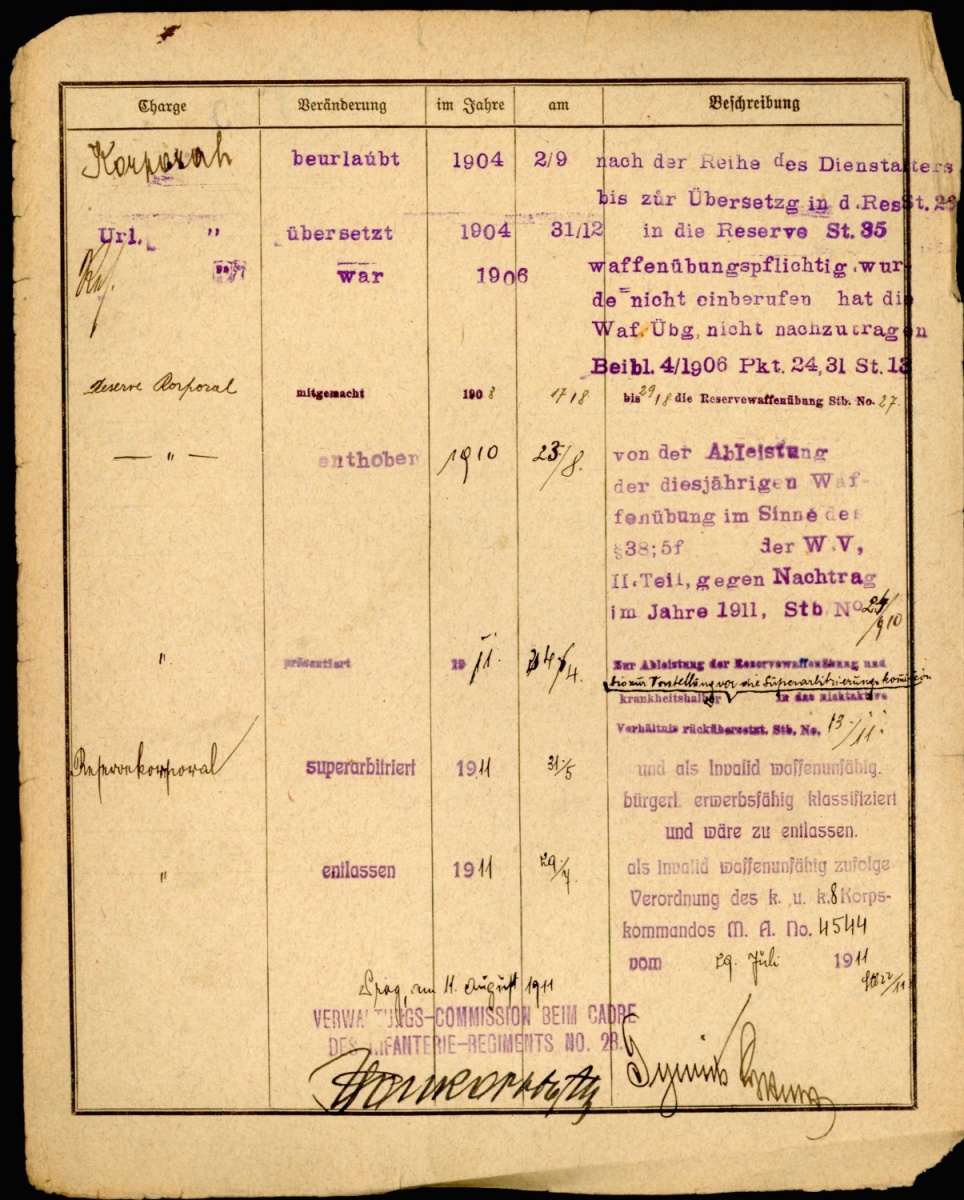 Charge Veränderung im Jahre am Beschreibung
Korporal beurlaubt 1904 2/9 nach der Reihe des Dienstalters
bis zur Übersetzg in d. Res St. 28
Url. " übersetzt 1904 31/12 in die Reserve St. 35
war 1906 waffenübungspflichtig wur-
de nicht einberufen hat die
Waf. Übg, nicht nachzutragen
Beibl. 4/1906 Pkt. 24, 31 St. 13
Reserve Korporal mitgemacht 1908 17/8 bis 29/8 die Reservewaffenübung Stb. No. 27.
— " — enthoben 1910 23/8. von der Ableistung
der diesjährigen Waf-
fenübung im Sinne des
§38; 5f der W.V,
II. Teil, gegen Nachtrag
im Jahre 1911, Stb No 25/910
" präsentiert 1911. 4/4. Zur Ableistung der Reservewaffenübung und
bis zur Vorstellung vor die Superarbitrierungskommission
krankheitshalber in das nichtaktive
Verhältnis rückübersetzt. Stb. No. 13/11.
Reservekorporal superarbitriert 1911 31/5 und als Invalid waffenunfähig.
bürgerl. erwerbsfähig klassifiziert
und wäre zu entlassen.
" entlassen 1911 29/7 als Invalid waffenunfähig zufolge
Verordnung des k. u. k. 8 Korps-
kommandos M. A. No. 4544
vom 29. Juli 1911
Stb 22/911
Prag, am 11. August 1911
VERWALTUNGS-COMMISSION BEIM CADRE
DES INFANTERIE-REGIMENTS NO. 28.